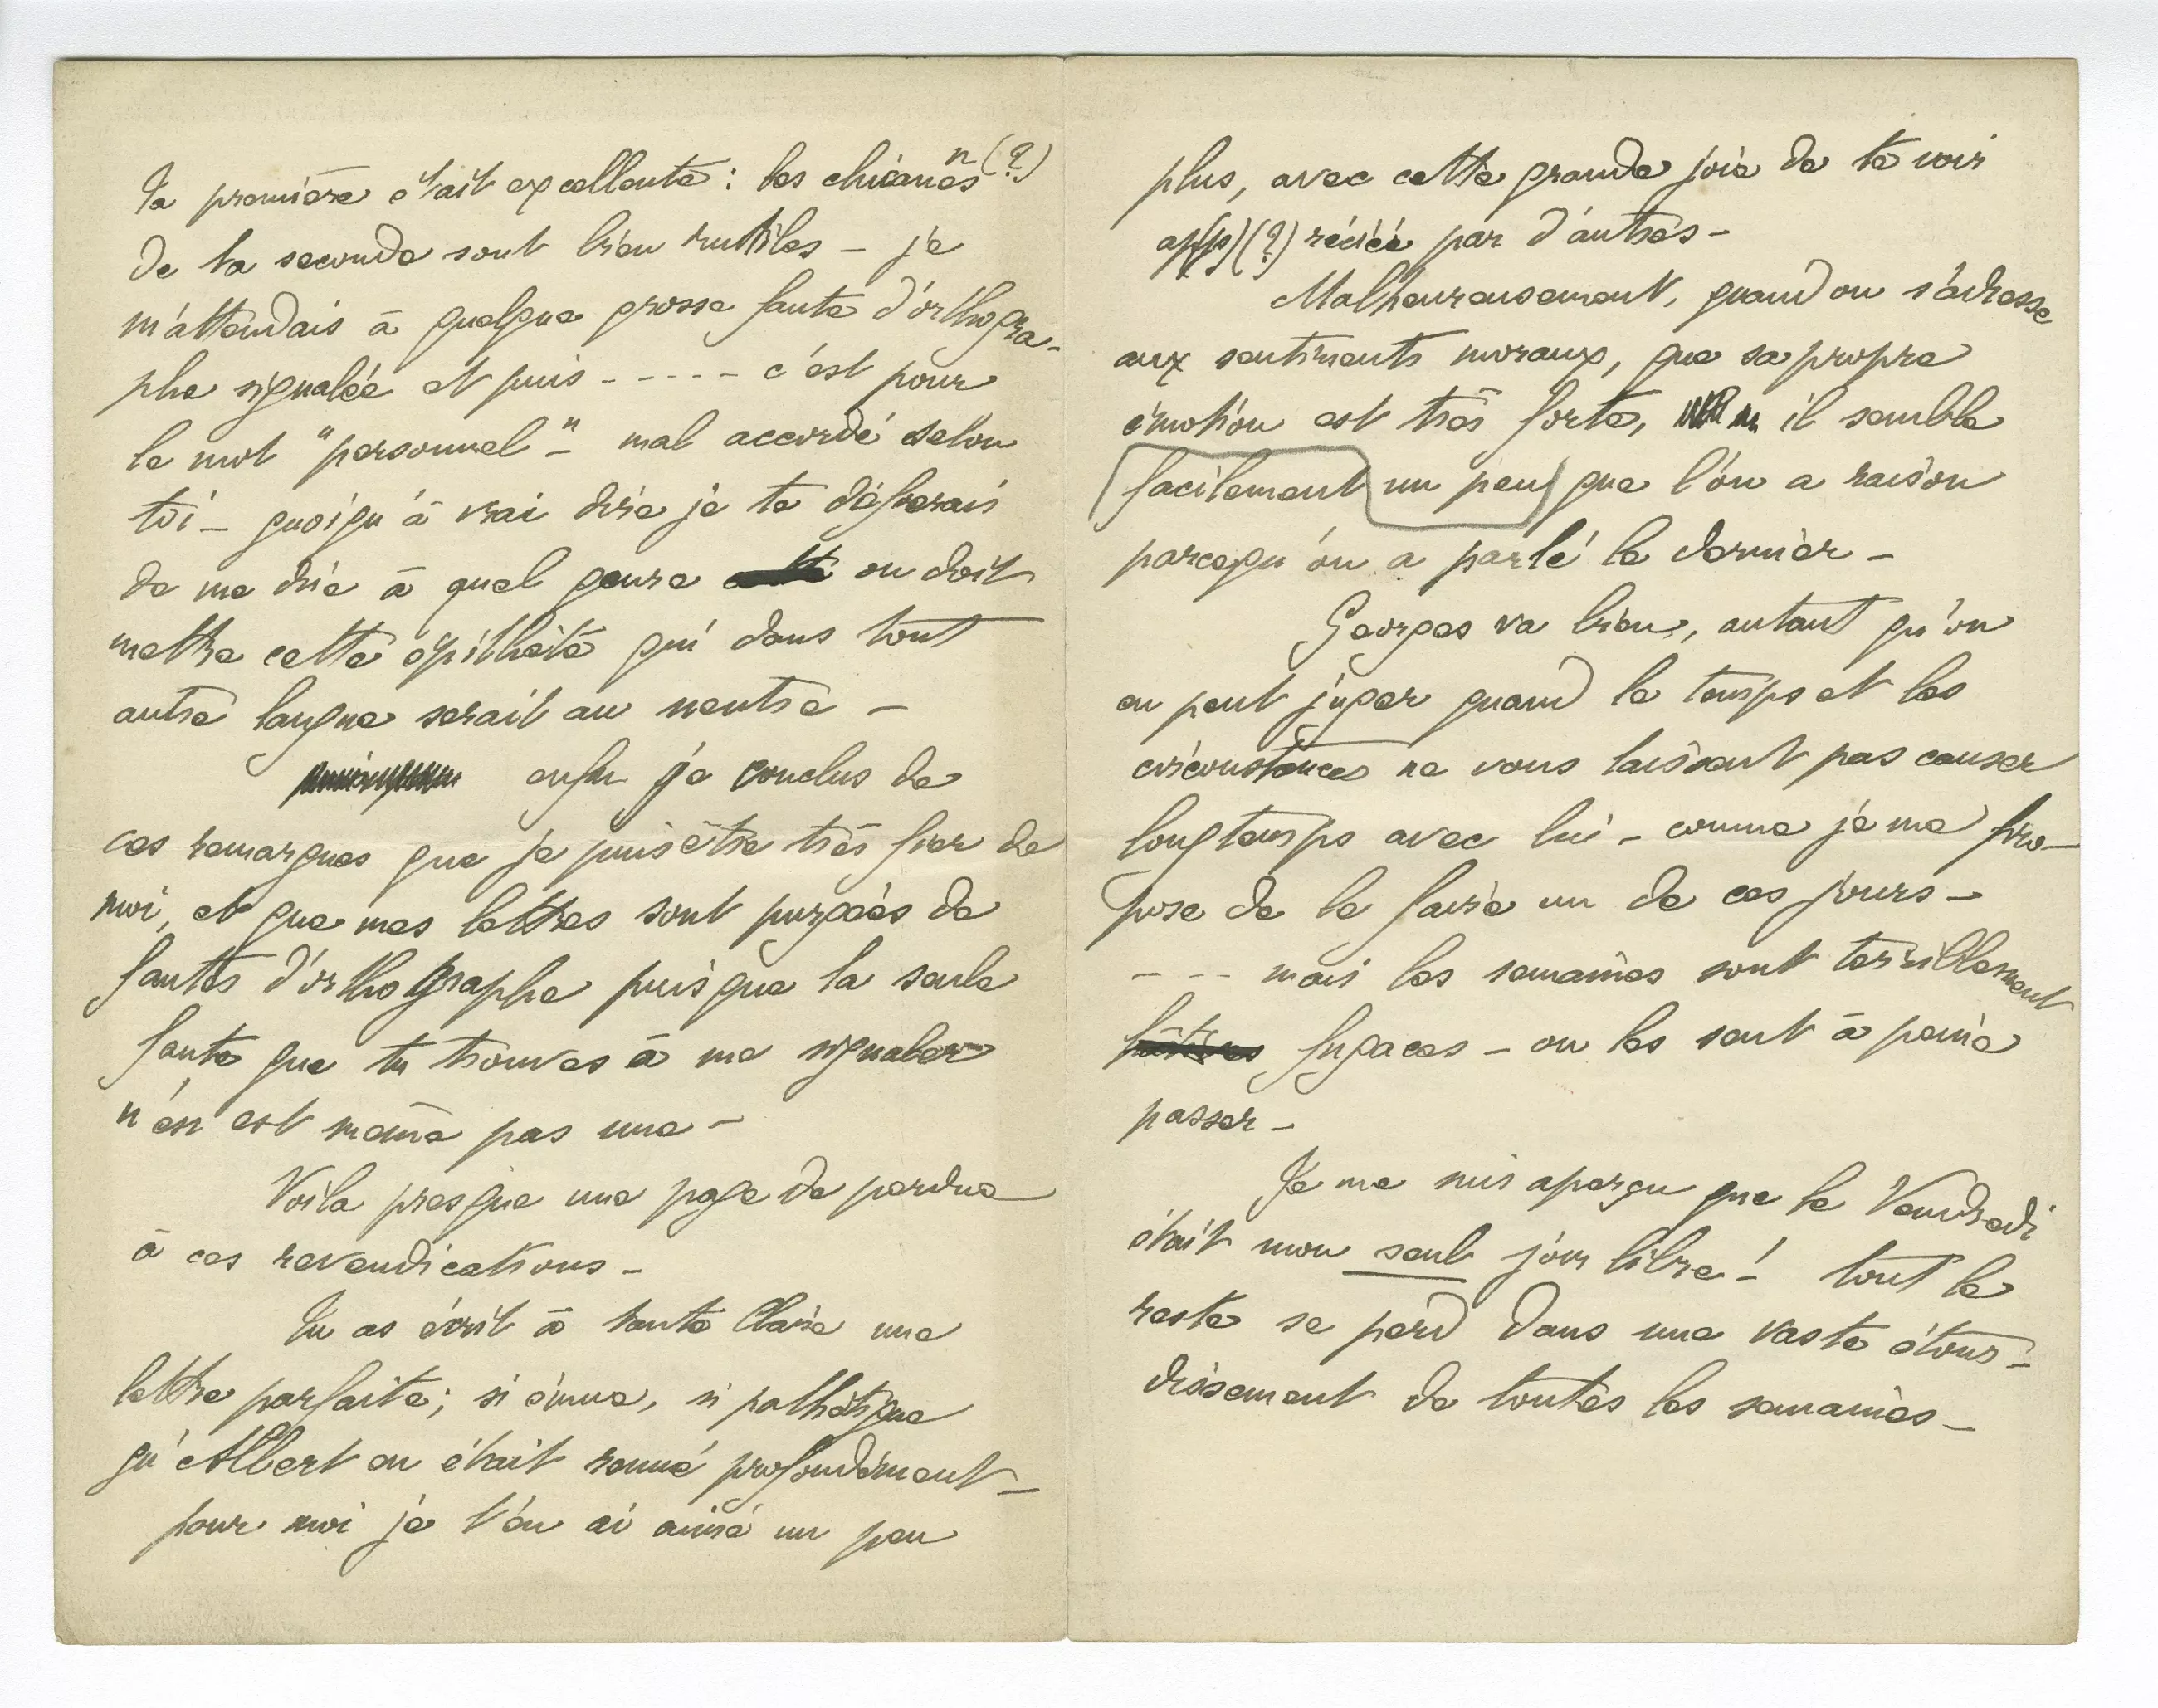 Ta première était excellente : les chicanes n(?)
de ta seconde sont bien inutiles – je
m'attendais à quelque grosse faute d'orthogra-
phe signalée et puis ----- c'est pour
le mot "personnel" – mal accordé selon
toi – quoiqu'à vrai dire je te défierais
de me dire à quel genre on doit
mettre cette épithète qui dans tout
autre langue serait au neutre –
enfin je conclus de
ces remarques que je puis être très fier de
moi, et que mes lettres sont purgées de
fautes d'orthographe puisque la seule
faute que tu trouves à me signaler
n'en est même pas une –
Voila presque une page de perdue
à ces revendications –
Tu as écrit à tante Claire une
lettre parfaite ; si émue, si pathétique
qu'Albert en était remué profondément –
pour moi je t'en ai aimé un peu
plus, avec cette grande joie de te voir
ap(p)(?)réciée par d'autres –
Malheureusement, quand on s'adresse
aux sentiments moraux, que sa propre
émotion est très forte, il semble
facilement un peu que l'on a raison
parcequ'on a parlé le dernier –
Georges va bien, autant qu'on
en peut juger quand le temps et les
circonstances ne vous laissent pas causer
longtemps avec lui – comme je me pro-
pose de le faire un de ces jours –
--- mais les semaines sont terriblement
fugaces – on les sent à peine
passer –
Je me suis aperçu que le Vendredi
était mon seul jour libre ! – tout le
reste se perd dans une vaste étour-
dissement de toutes les semaines –